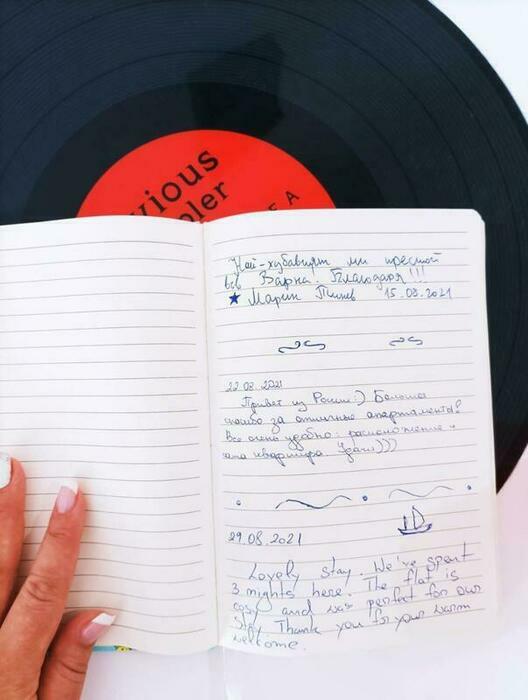 vious
pler
EA
Най-хубавият ми престой
във Варна. Благодаря!!!
★ Марин 15.08.2021
22.08.2021
Привет из России:) Большое
спасибо за отличные апартаменты!
Все очень удобно: расположение и
сама квартира. Удачи)))
29.08.2021
Lovely stay. We've spent
3 nights here. The flat is
cosy and was perfect for our
stay. Thank you for your warm
welcome.